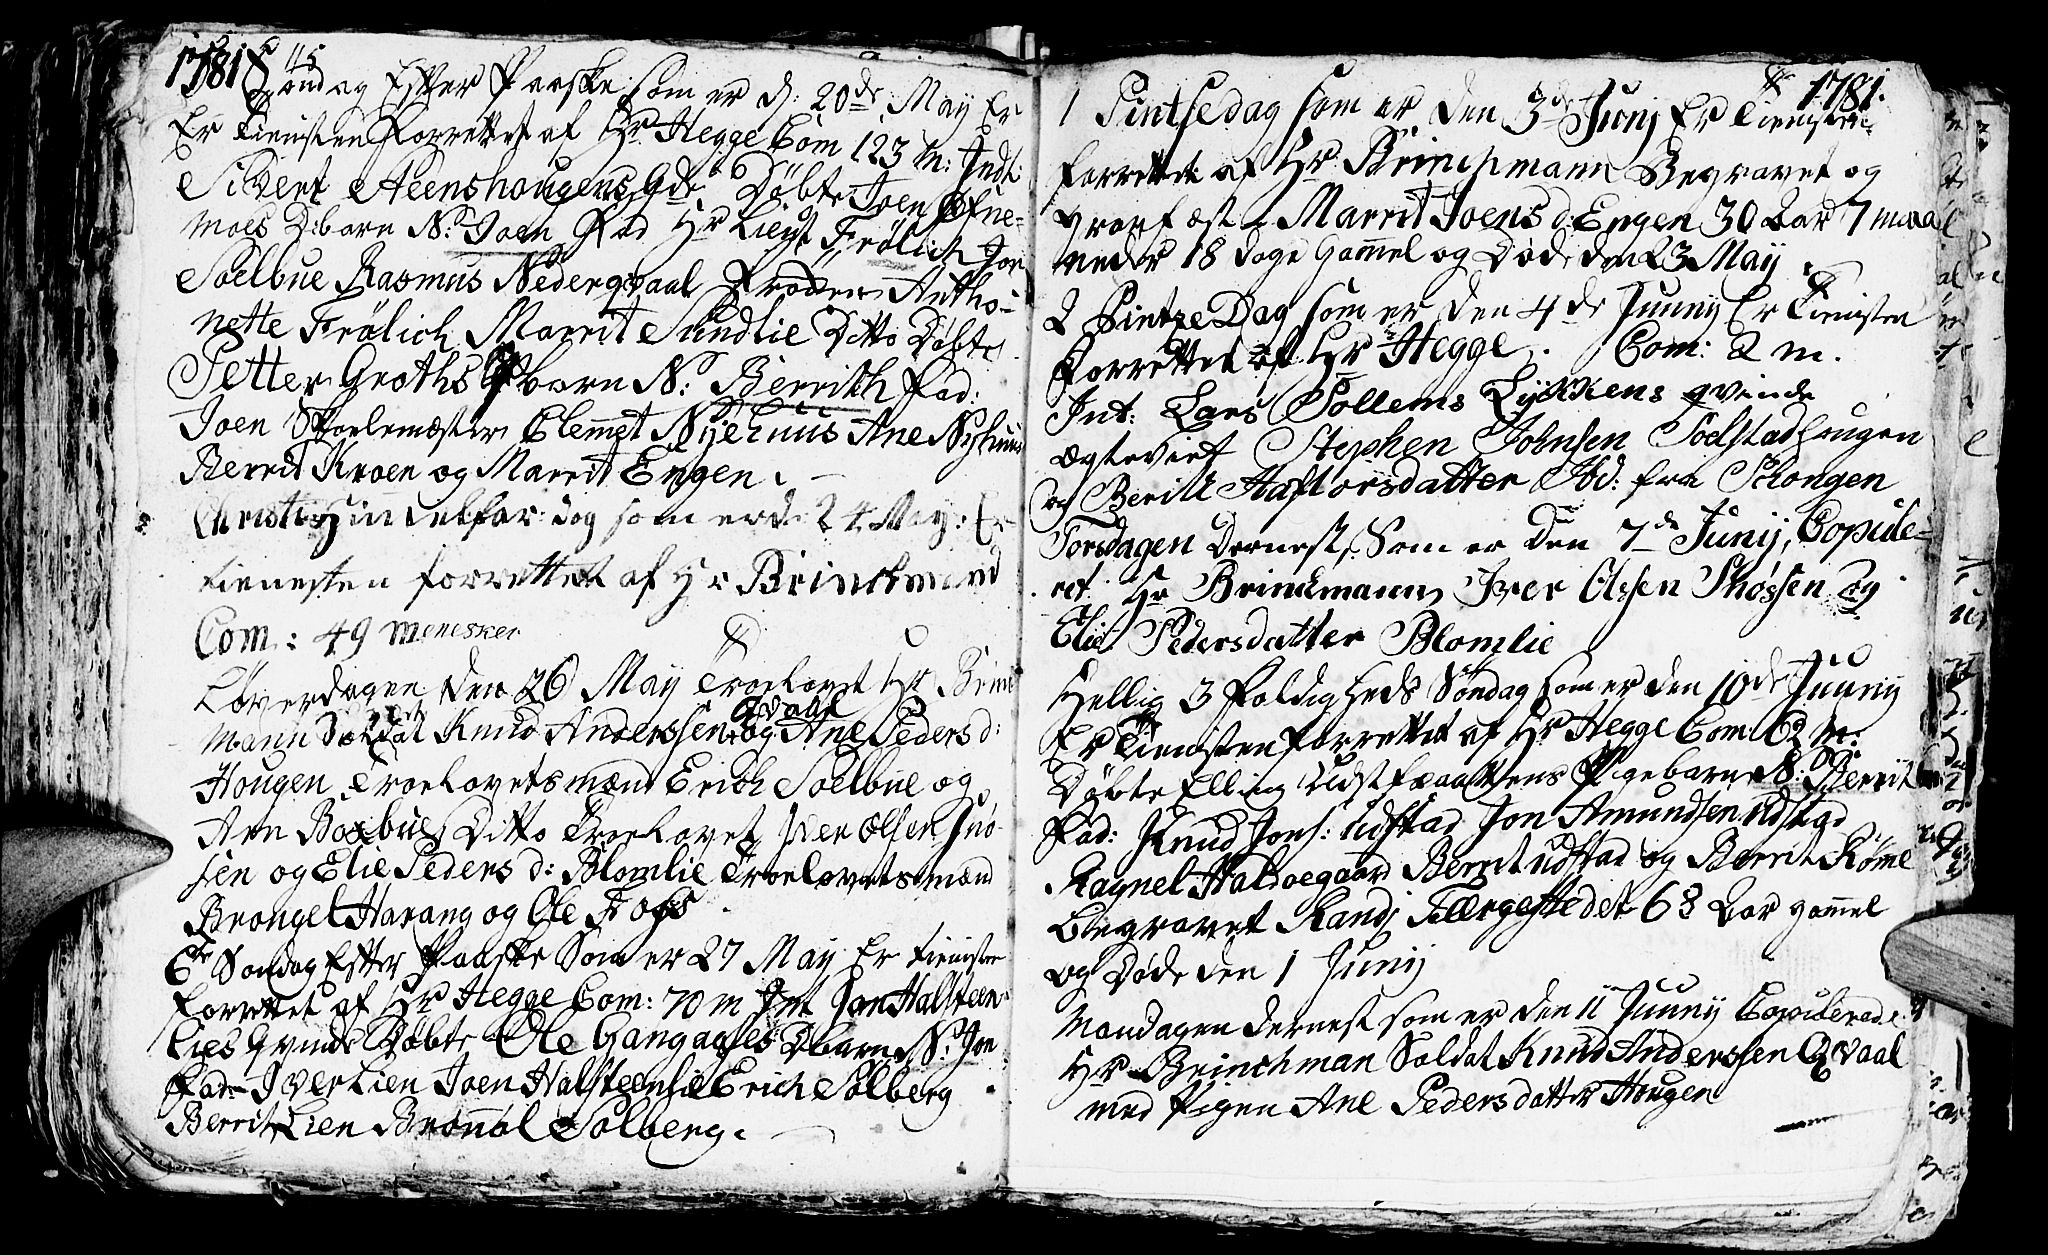 1781 S 115
Søndag Efter Paaske som er d: 20de May Er
Er tienisten Forrettet af Hr Hegge Com 123 m: Indl:
Sivert Aeenshougens Qde Døbte Joen Ofne-
moes D:barn N: Joen Fad Hr Lieut Frölich Jon
Soelbue Rasmus Nedergvaal Frøden Antho-
nette Frölich Marrit Sundlie Ditto Døbte
Petter Groths P barn N: Berrith Fad:
Joen Skoelemester Clemet Nyehuus Ane Nyhuus
Berrit Kroen og Marrit Engen. —
Christi Himelfar: dag som er d: 24 May: Er
tienesten forrettet af Hr Brinchmand
Com: 49 menesker
Løverdagen den 26 May Troelovet Hr Brinc
mann Soldat Knud Anderssen Qvaal og Ane Peders d:
Hougen Troelovetsmænd Erich Soelbue og
Arn Boxbue Ditto Troelovet Iver Olsen Snø-
sen og Elie Peders d: Blomlie Troelovetsmænd
Brongel Harang og Ole Foss.
6te Søndag Efter Paaske Som er 27 May Er tienisten
forrettet af Hr Hegge Com: 70 m Int Jon Halsteen-
lies Qvinde Døbte Ole Gangaases D barn N: Jon
Fad: Iver Lien Joen Halsteenlie Erich Solberg
Berrit Lien Brønnel Solberg. —
1781.
1 Pintsedag som er den 3de Junj Er tienisten
forrettet af Hr Brinchmann Begravet og
Graafæst Marrit Joens d: Engen 30 Aar 7 maa
neder 18 dage Gammel og Døde den 23 May
2 Pintze Dag som er den 4de Juny Er Tienisten
Forrettet af Hr Hegge. Com: 2 m.
Int: Lars Sollems Lykkens qvinde
Ægteviet Stephen Johnsen Soelstadhougen
og Berith Haftorsdatter Ibd: fra Schongen
Torsdagen Dernest, Som er den 7de Junij, Copule-
ret Hr Brinchmann Iver Olssen Snøssen og
Elie Pedersdatter Blomlie
Hellig 3 Foldigheds Søndag som er den 10de Juuny
Er tienisten forrettet af Hr Hegge Com 62 m:
Døbte Elling Udstfraattens Pigebarn N: Berrit
Fad: Knud Jons: Udstad Jon Amundsen Udstad
Ragnel Haldoegaard Berrit Udstad og Berrit Röme
begravet Randi Tellergstedet 63 Aar gammel
og Døde den 1 Juny
Mandagen dernest som er den 11 Juuny Copulerede
Hr Brinchman Soldat Knud Anderssen Qvaal
med Pigen Ane Pedersdatter Hougen